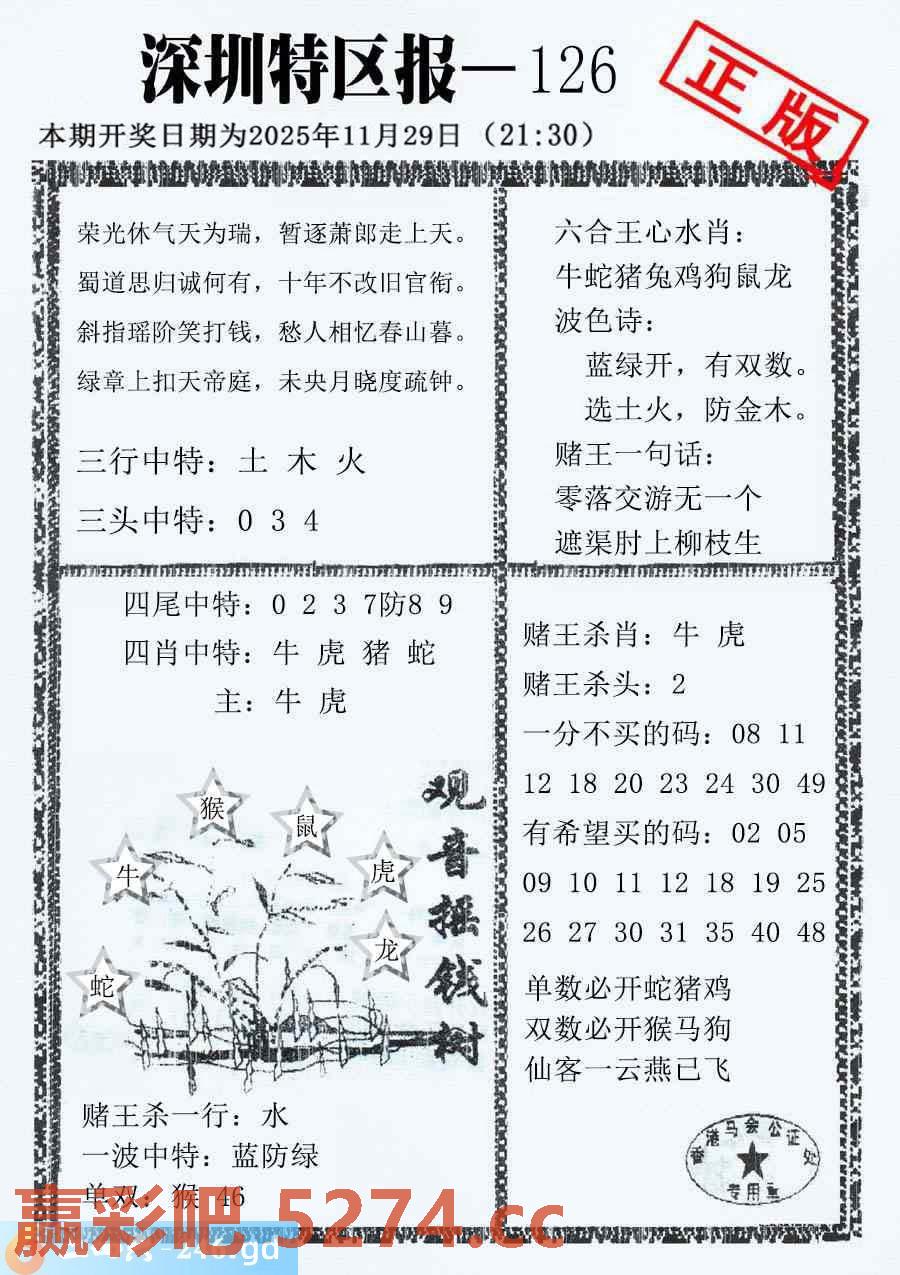 深圳特区报—126
正版
本期开奖日期为2025年11月29日（21:30）
荣光休气天为瑞，暂逐萧郎走上天。
蜀道思归诚何有，十年不改旧官衔。
斜指瑶阶笑打钱，愁人相忆春山暮。
绿章上扣天帝庭，未央月晓度疏钟。
三行中特：土 木 火
三头中特：0 3 4
六合王心水肖：
牛蛇猪兔鸡狗鼠龙
波色诗：
蓝绿开，有双数。
选土火，防金木。
赌王一句话：
零落交游无一个
遮渠肘上柳枝生
四尾中特：0 2 3 7防8 9
四肖中特：牛 虎 猪 蛇
主：牛 虎
猴
鼠
牛
虎
龙
蛇
观音摇钱树
赌王杀一行：水
一波中特：蓝防绿
单双：猴 46
赌王杀肖：牛 虎
赌王杀头：2
一分不买的码：08 11
12 18 20 23 24 30 49
有希望买的码：02 05
09 10 11 12 18 19 25
26 27 30 31 35 40 48
单数必开蛇猪鸡
双数必开猴马狗
仙客一云燕已飞
香港马会公证处
专用章
赢彩吧 5274.cc